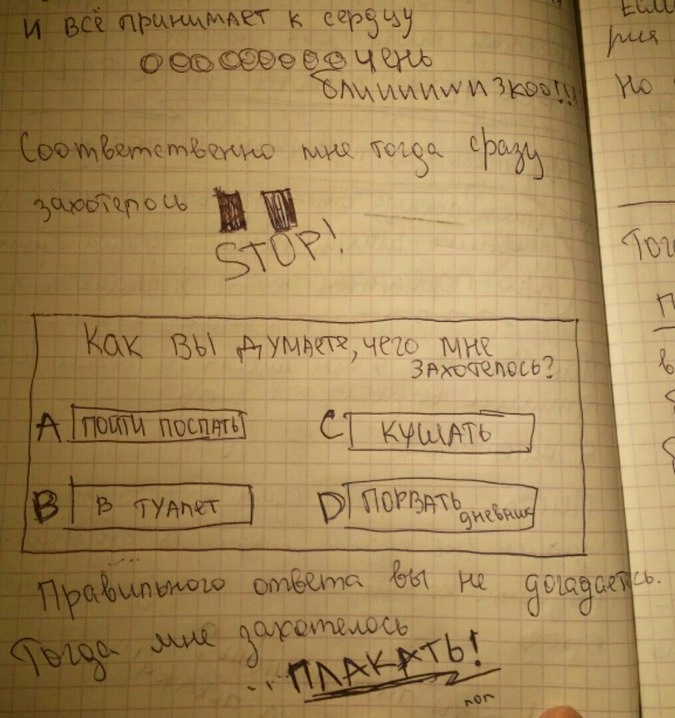 и всё принимает к сердцу
ооооооооочень
блииииииизкоо!!!
Соответственно мне тогда сразу
захотелось
STOP!
Как вы думаете, чего мне
захотелось?
A пойти поспать
C кушать
B в туалет
D порвать
дневник
Правильного ответа вы не догадаетесь.
Тогда мне захотелось
...ПЛАКАТЬ!
Но
Тог